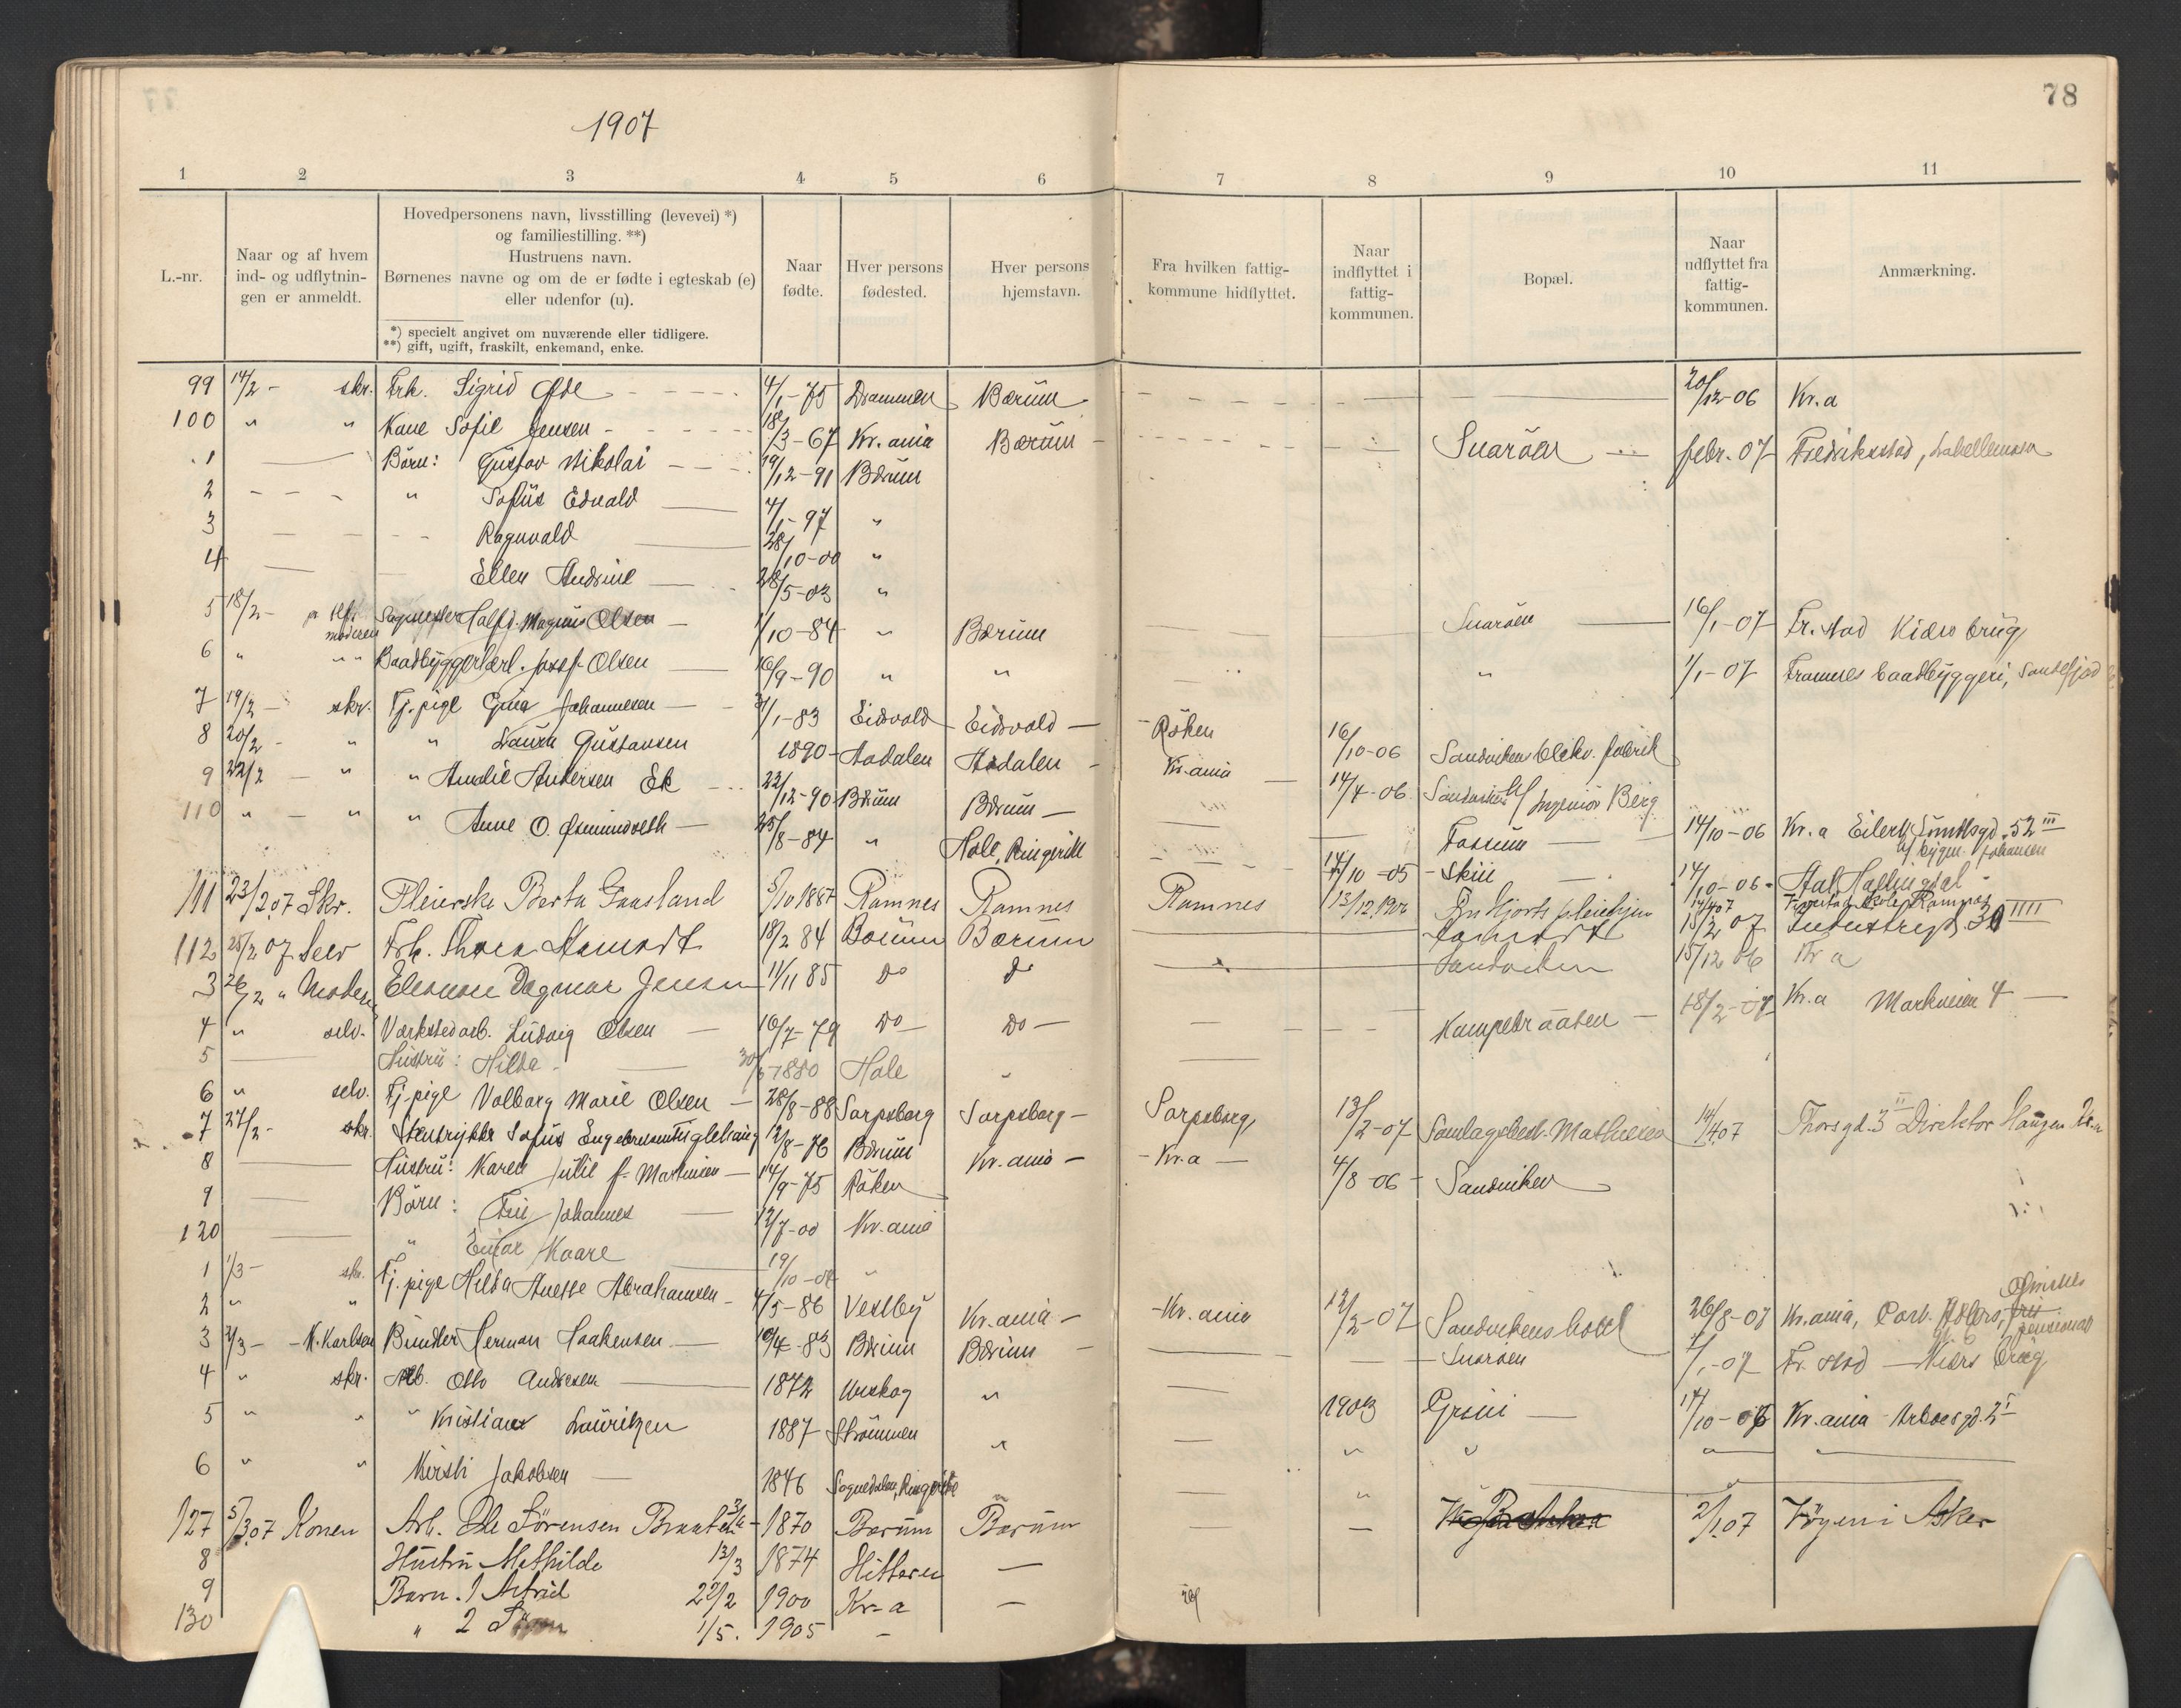 78
1907
1 2 3 4 5 6 7 8 9 10 11
L.-nr.
Naar og af hvem ind- og udflytnin-gen er anmeldt.
Hovedpersonens navn, livsstilling (levevei) *)
og familiestilling. **)
Hustruens navn.
Børnenes navne og om de er fødte i egteskab (e)
eller udenfor (u).
*) specielt angivet om nuværende eller tidligere.
**) gift, ugift, fraskilt, enkemand, enke.
Naar fødte.
Hver persons fødested.
Hver persons hjemstavn.
Fra hvilken fattig-kommune hidflyttet.
Naar indflyttet i fattig-kommunen.
Bopæl.
Naar udflyttet fra fattig-kommunen.
Anmærkning.
99 14/2 - skr. Frk. Sigrid 4/1-75 Drammen Bærum 20/12-06 Kr.a
100 " " Kone Sofie Jensen 18/3-67 Kr.ania Bærum Snarøen febr. 07 Fredriksstad,
1 Børn: Gustav Nikolai 19/12-91 Bærum
2 " Sofus Edvald 4/5-97 "
3 Ragnvald 28/10-00 "
4 Ellen Andrine 28/5-03 "
5 18/2 - moderen Magnus Olsen 1/10-84 " Bærum Snarøen 16/1-07 Fr.stad Kiærs brug
6 " " Baadbyggerlærl. Josef Olsen 16/9-90 " " " 1/1-07 Framnes baadbyggeri, Sandefjord
7 19/2 - skr. Tj.pige Gina Johannesen 3/1-83 Eidsvold Eidsvold Røken 16/10-06 Sandviken elektr. fabrik
8 20/2 - " " Laura Gustavsen 1890 Aadalen Aadalen Kr.ania 14/4-06 Sandviken h/ Ingeniør Berg
9 22/2 - " " Amalie Andersen Ek 23/12-90 Bærum Bærum Fossum 14/10-06 Kr.a Eilert Sundtsgd. 52 III
110 " - " " Anne O. 25/8-84 " Hole, Ringerike 14/10-05 Skui 14/10-06 Hallingdal
111 23/2 07 Skr. Pleierske Berta Gaasland 5/10 1887 Ramnes Ramnes Ramnes 13/12 1906 14/4 07 Ramnes
112 25/2 07 Selv Frk. Thora 18/2 84 Bærum Bærum 15/2 07 Industrigd. 30 IIII
3 26/2 " Moderen Eleonore Dagmar Jensen 11/11 85 do do Sandviken 15/12 06 Kr a
4 " selv. Værkstedarb. Ludvig Olsen 16/7-79 Do Do Kampebraaten 18/2-07 Kr.a Markveien 4
5 Hustru: Hilda 30/5 1880 Hole "
6 " selv. Tj.pige Valborg Marie Olsen 28/8-88 Sarpsborg Sarpsborg Sarpsborg 13/2-07 Mathiesen 14/4 07 Thorsgd. 3 II Direktor Haugen Kr.a
7 27/2 - skr. Stentrykker Sofus Engebretsen Teglehaug 12/8-76 Bærum Kr.ania Kr.a 4/8-06 Sandviken
8 Hustru: Karen Julie f. Martinsen 14/9-75 Røken
9 Børn: Johannes 12/7-00 Kr.ania
120 " Einar Kaare 19/10-04 "
1 1/3 - skr. Tj.pige Hilda Anette Abrahamsen 4/5-86 Vestby Kr.ania Kr.ania 12/2-07 Sandvikens hotel 26/8-07 Kr.ania, pensionat
2 " "
3 2/3 - K. Karlsen Herman Haakensen 10/4-83 Bærum Bærum Snarøen 1/1-07 Fr.stad Kiærs brug
4 " skr. Arb. Otto Andresen 1872 Urskog " 1903 Grini 14/10-06 Kr.ania Arboesgd. 2 I
5 " " " Kristian Lauritzen 1887 Strømmen " " " " "
6 " " Kirsti Jakobsen 1846 Sognedalen, Ringerike " "
127 5/3 07 Konen Arb. Ole Sørensen Braaten 1870 Bærum Bærum 2/1 07 Vøyen i Asker
8 Hustru Mathilde 13/3 1874 Hitteren
9 Barn. 1 Astrid 22/2 1900 Kr-a
130 " 2 1/5. 1905